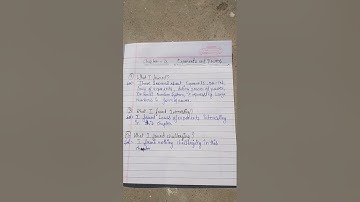 Chapter - Exponents and Powers
① What I learned?
Ans- I have learned about Exponents,
laws of exponents,
Decimal Number System, Expressing large
Numbers in
② What I found Interesting?
Ans- I found Laws of exponents Interesting
in this chapter.
③ What I found challenging?
Ans- I found nothing challenging in this
chapter